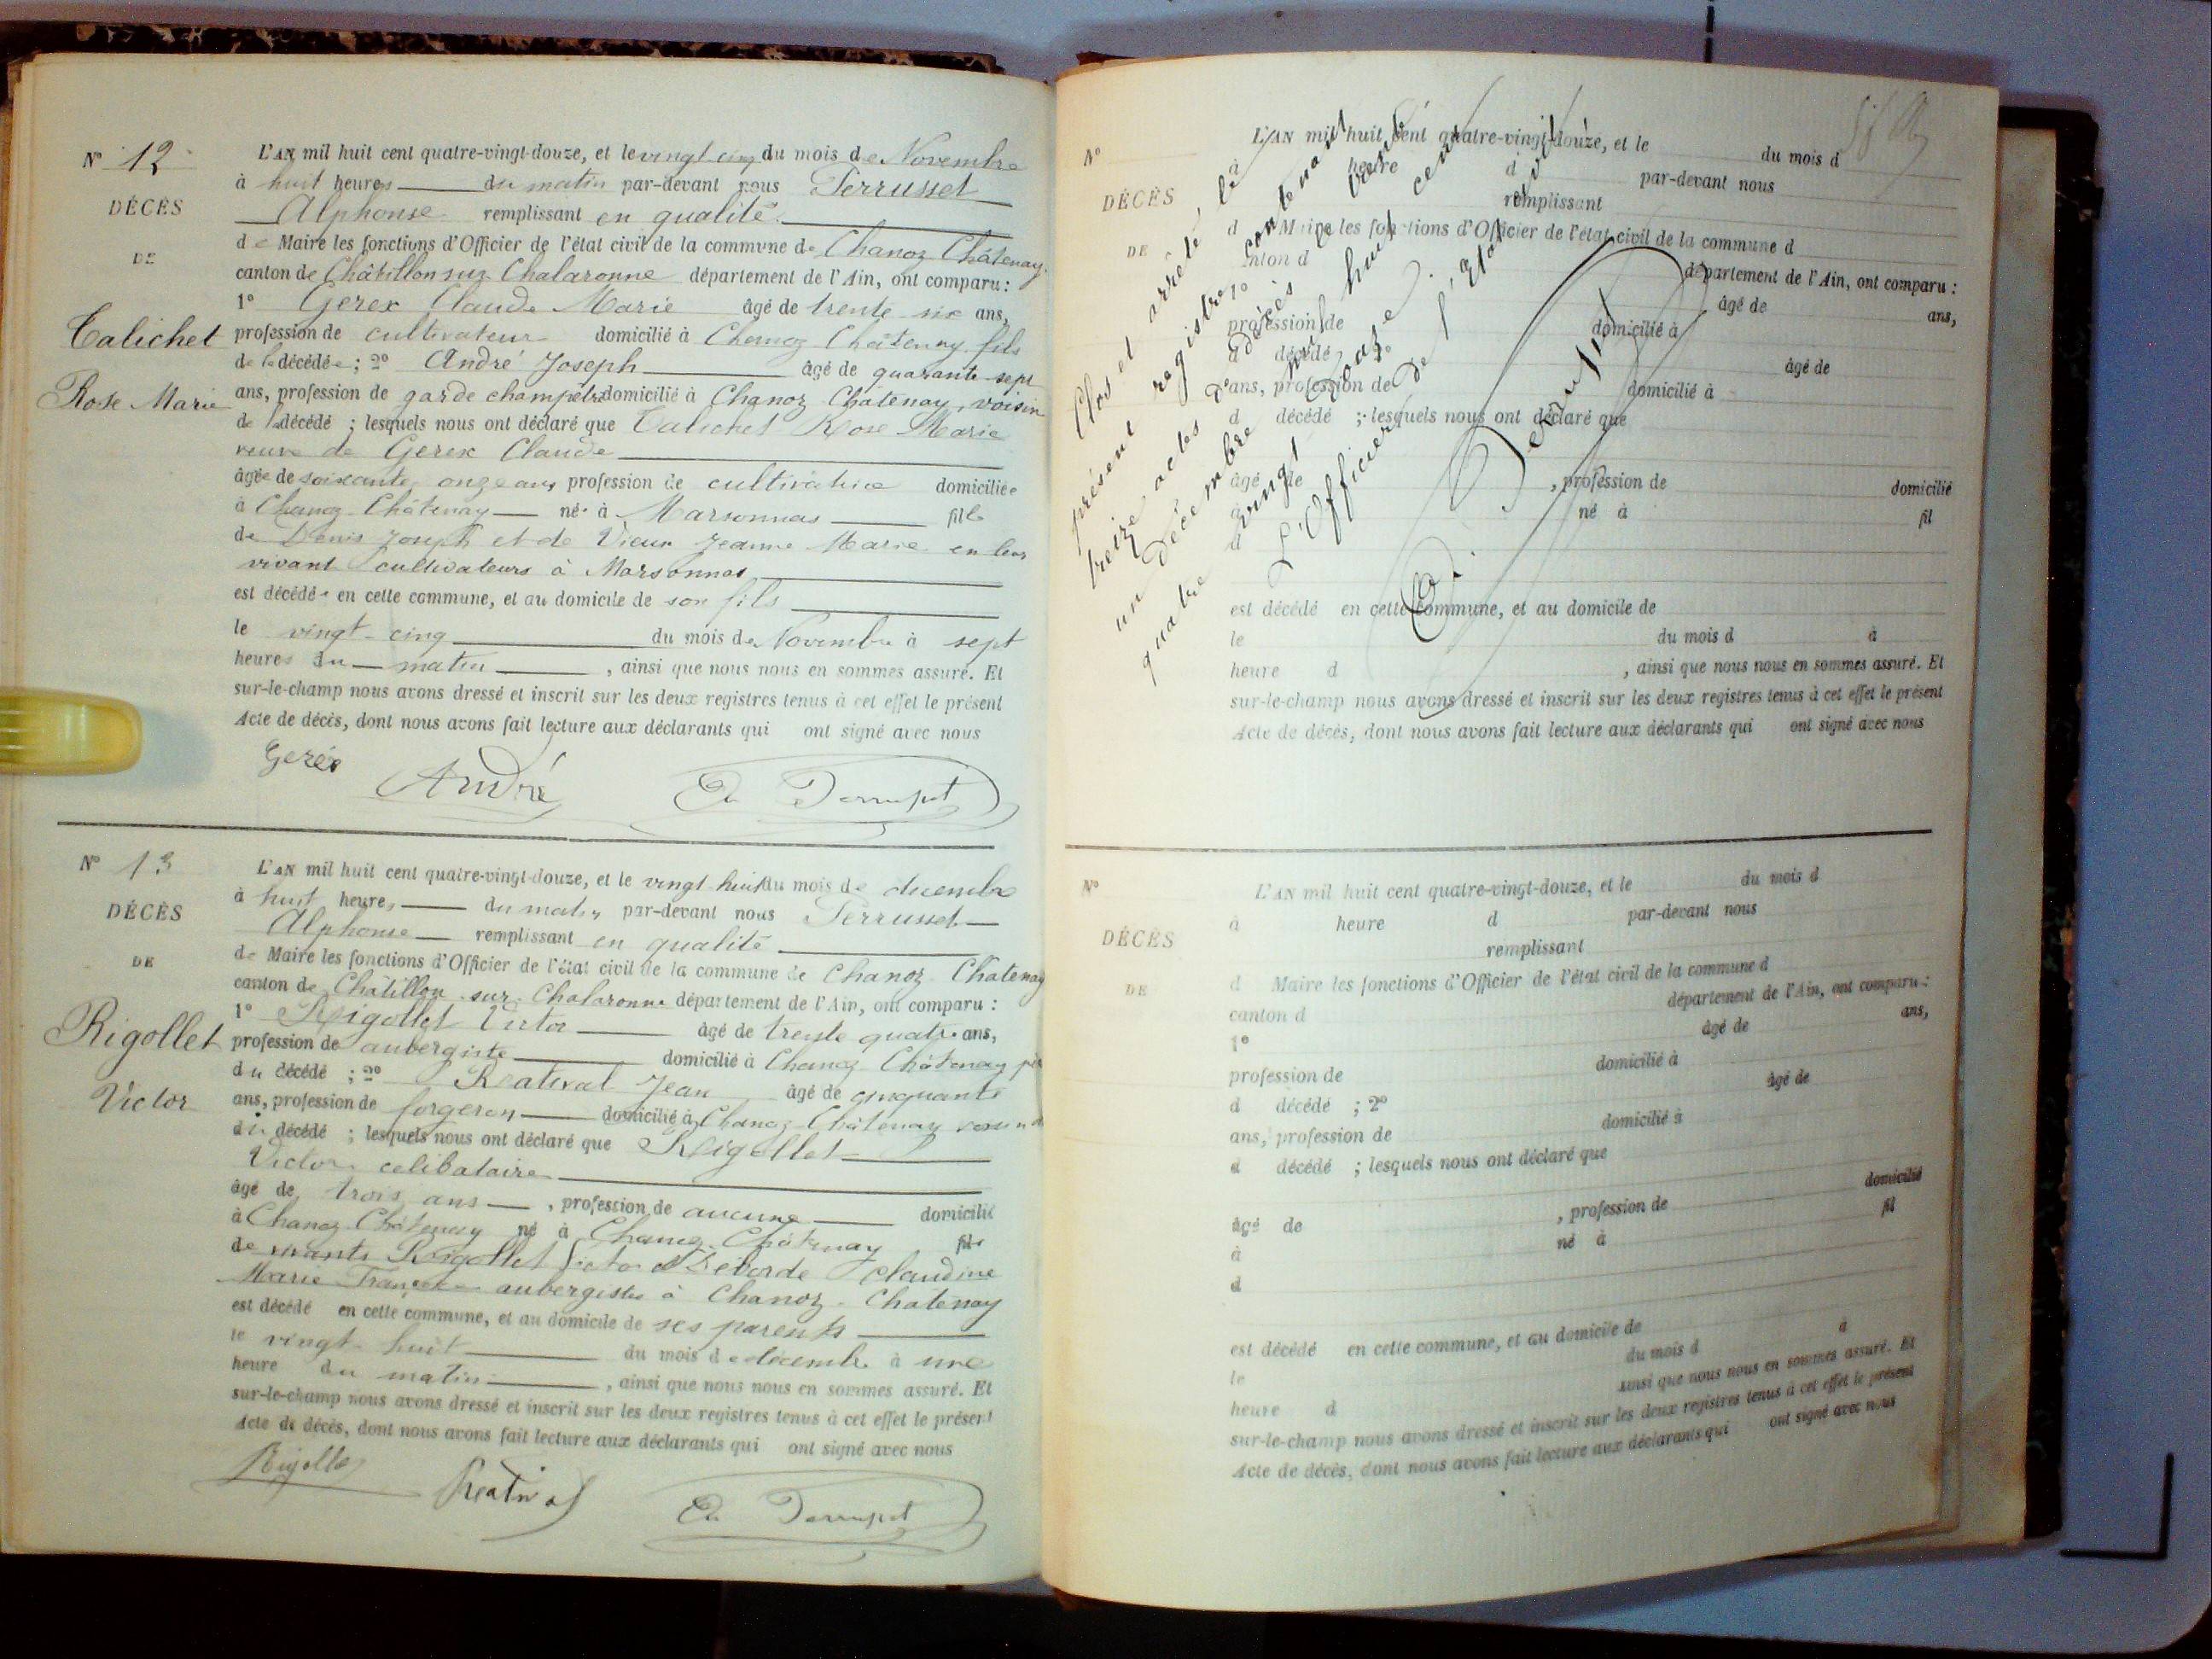 N° 12
DÉCÈS
DE
Calichet
Rose Marie
L'AN mil huit cent quatre-vingt-douze, et le vingt cinq du mois de Novembre
à huit heures du matin par-devant nous Perrusset
Alphonse remplissant en qualité
de Maire les fonctions d'Officier de l'état civil de la commune de Chanoz Châtenay
canton de Châtillon sur Chalaronne département de l'Ain, ont comparu :
1° Gerex Claude Marie âgé de trente six ans,
profession de cultivateur domicilié à Chanoz Châtenay fils
de la décédée ; 2° André Joseph âgé de quarante sept
ans, profession de garde champêtre domicilié à Chanoz Chatenay, voisin
de la décédé ; lesquels nous ont déclaré que Calichet Rose Marie
veuve de Gerex Claude
âgée de soixante onze ans profession de cultivatrice domiciliée
à Chanoz Châtenay né à Marsonnas fille
de Denis Joseph et de Vieux Jeanne Marie en leur
vivant cultivateurs à Marsonnas
est décédée en cette commune, et au domicile de son fils
le vingt-cinq du mois de Novembre à sept
heures du matin, ainsi que nous nous en sommes assuré. Et
sur-le-champ nous avons dressé et inscrit sur les deux registres tenus à cet effet le présent
Acte de décès, dont nous avons fait lecture aux déclarants qui ont signé avec nous
Gerex André
N° 13
DÉCÈS
DE
Rigollet
Victor
L'AN mil huit cent quatre-vingt-douze, et le vingt huit du mois de décembre
à huit heures du matin par-devant nous Perrusset
Alphonse remplissant en qualité
de Maire les fonctions d'Officier de l'état civil de la commune de Chanoz Chatenay
canton de Châtillon sur Chalaronne département de l'Ain, ont comparu :
1° Rigollet Victor âgé de trente quatre ans,
profession de aubergiste domicilié à Chanoz Châtenay père
du décédé ; 2° Reatival Jean âgé de cinquante
ans, profession de forgeron domicilié à Chanoz Châtenay voisin
du décédé ; lesquels nous ont déclaré que Rigollet
Victor celibataire
âgé de trois ans, profession de aucune domicilié
à Chanoz Châtenay né à Chanoz Châtenay fils
de vivants Rigollet Victor et Claudine
Marie aubergistes à Chanoz Chatenay
est décédé en cette commune, et au domicile de ses parents
le vingt huit du mois de décembre à une
heure du matin, ainsi que nous nous en sommes assuré. Et
sur-le-champ nous avons dressé et inscrit sur les deux registres tenus à cet effet le présent
Acte de décès, dont nous avons fait lecture aux déclarants qui ont signé avec nous
Rigollet Reatival
N°
DÉCÈS
DE
L'AN mil huit cent quatre-vingt-douze, et le du mois d
à heure d par-devant nous
remplissant
d Maire les fonctions d'Officier de l'état civil de la commune d
canton d département de l'Ain, ont comparu :
1° âgé de ans,
profession de domicilié à
d décédé ; 2° âgé de
ans, profession de domicilié à
d décédé ; lesquels nous ont déclaré que
âgé de , profession de domicilié
à né à fil
d
est décédé en cette commune, et au domicile de
le du mois d à
heure d , ainsi que nous nous en sommes assuré. Et
sur-le-champ nous avons dressé et inscrit sur les deux registres tenus à cet effet le présent
Acte de décès, dont nous avons fait lecture aux déclarants qui ont signé avec nous
Clos et arrêté, le
présent registre contenant
treize actes de décès le trente
un décembre mil huit cent
quatre vingt douze.
L'Officier de l'Etat civil
N°
DÉCÈS
DE
L'AN mil huit cent quatre-vingt-douze, et le du mois d
à heure d par-devant nous
remplissant
d Maire les fonctions d'Officier de l'état civil de la commune d
canton d département de l'Ain, ont comparu :
1° âgé de ans,
profession de domicilié à
d décédé ; 2° âgé de
ans, profession de domicilié à
d décédé ; lesquels nous ont déclaré que
âgé de , profession de domicilié
à né à fil
d
est décédé en cette commune, et au domicile de
le du mois d à
heure d ainsi que nous nous en sommes assuré. Et
sur-le-champ nous avons dressé et inscrit sur les deux registres tenus à cet effet le présent
Acte de décès, dont nous avons fait lecture aux déclarants qui ont signé avec nous